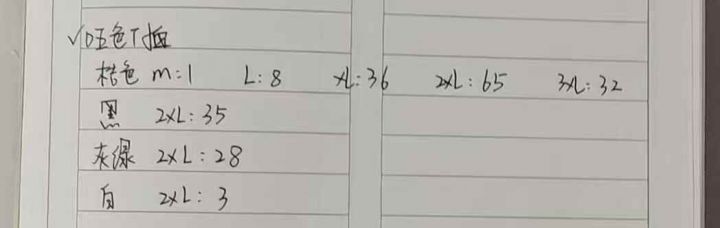 √口五色T恤
桔色 m:1 L:8 XL:36 2XL:65 3XL:32
黑 2XL:35
灰绿 2XL:28
白 2XL:3